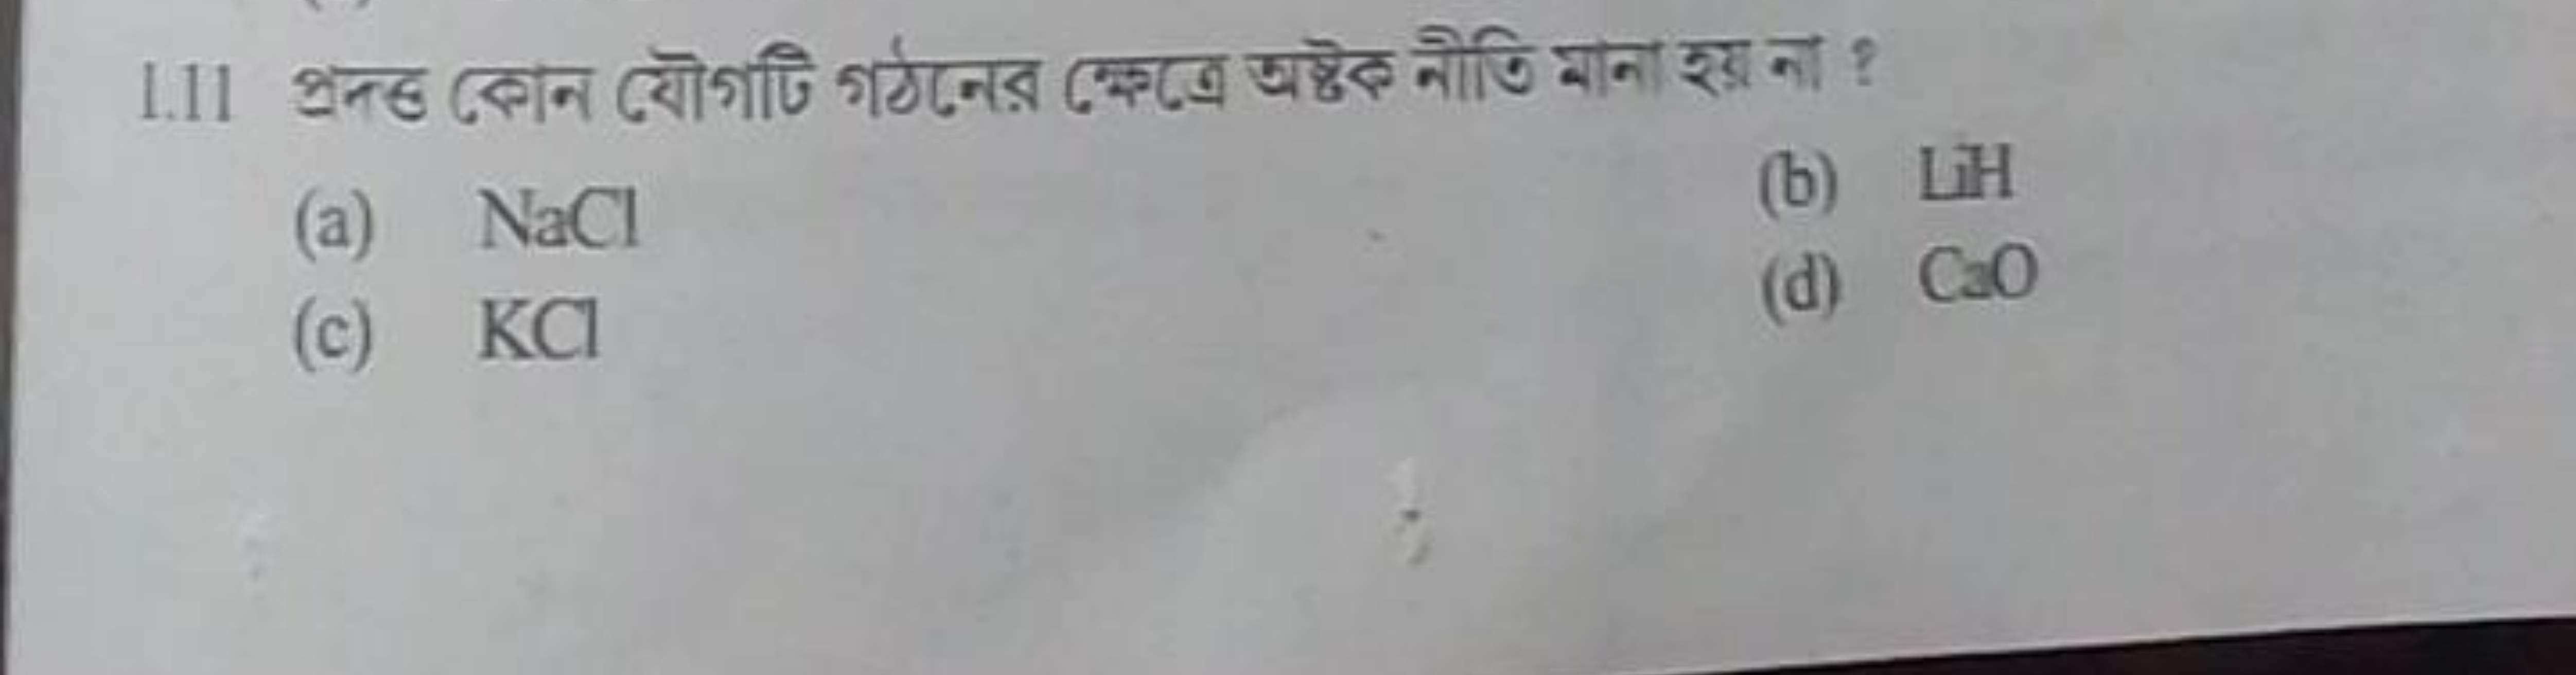 1.11 প্রদত্ত কোন যৌগটি গঠনের ক্ষেত্রে অষ্টক নীতি মানা হয় না ?
(a) NaCl (b) LiH
(c) KCl (d) CaO